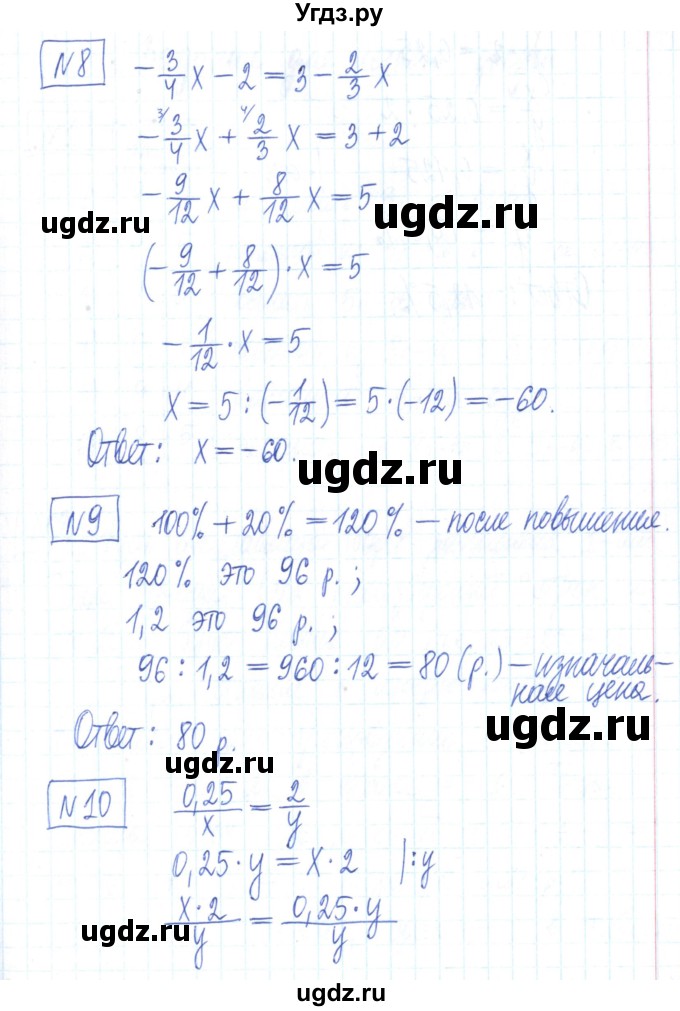 Угдз.ру
№8 -3/4 x - 2 = 3 - 2/3 x
-3/4 x + 2/3 x = 3 + 2
-9/12 x + 8/12 x = 5
ugdz.ru
ugdz.ru
(-9/12 + 8/12) · x = 5
-1/12 · x = 5
x = 5 : (-1/12) = 5 · (-12) = -60.
Ответ: x = -60.
ugdz.ru
№9 100% + 20% = 120% – после повышения.
120% это 96 р.;
1,2 это 96 р.;
96 : 1,2 = 960 : 12 = 80 (р.) – изначаль-
ная цена.
ugdz.ru
Ответ: 80 р.
ugdz.ru
№10 0,25/x = 2/y
0,25 · y = x · 2 |: y
x · 2/y = 0,25 · y/y
ugdz.ru
ugdz.ru
ugdz.ru